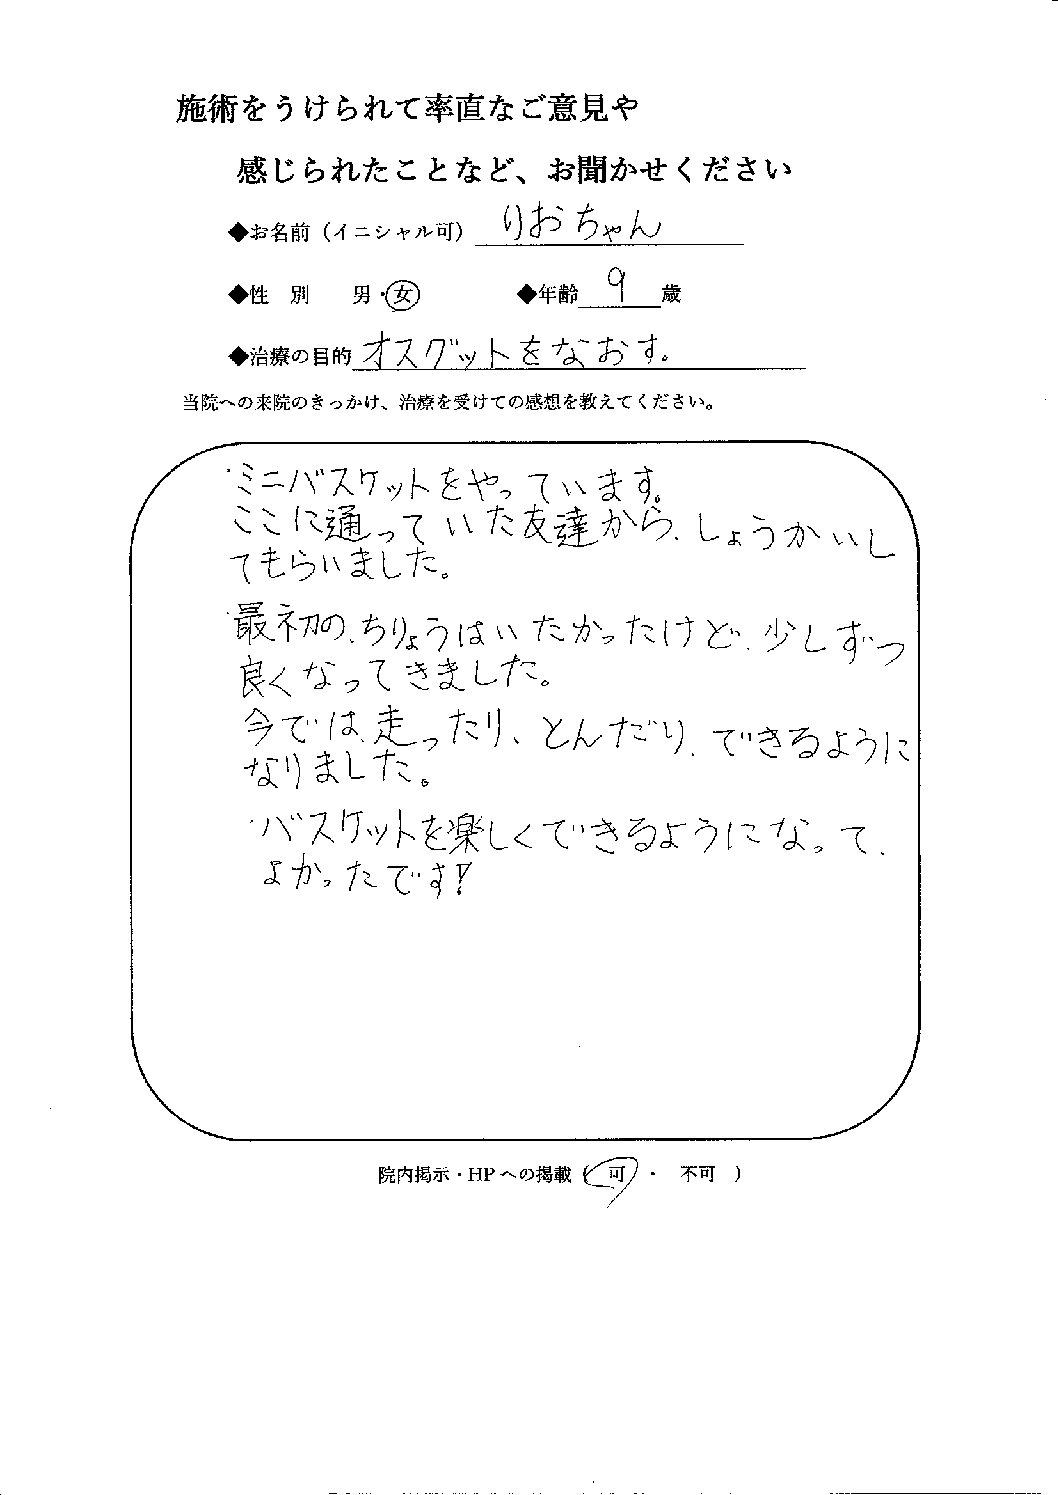 施術をうけられて率直なご意見や
感じられたことなど、お聞かせください
◆お名前（イニシャル可） りおちゃん
◆性 別 男・女 ◆年齢 9 歳
◆治療の目的 オスグットをなおす。
当院への来院のきっかけ、治療を受けての感想を教えてください。
・ミニバスケットをやっています。
ここに通っていた友達から、しょうかいし
てもらいました。
・最初の、ちりょうはいたかったけど、少しずつ
良くなってきました。
今では、走ったり、とんだり、できるように
なりました。
・バスケットを楽しくできるようになって、
よかったです!
院内掲示・HPへの掲載（ 可 ・ 不可 ）